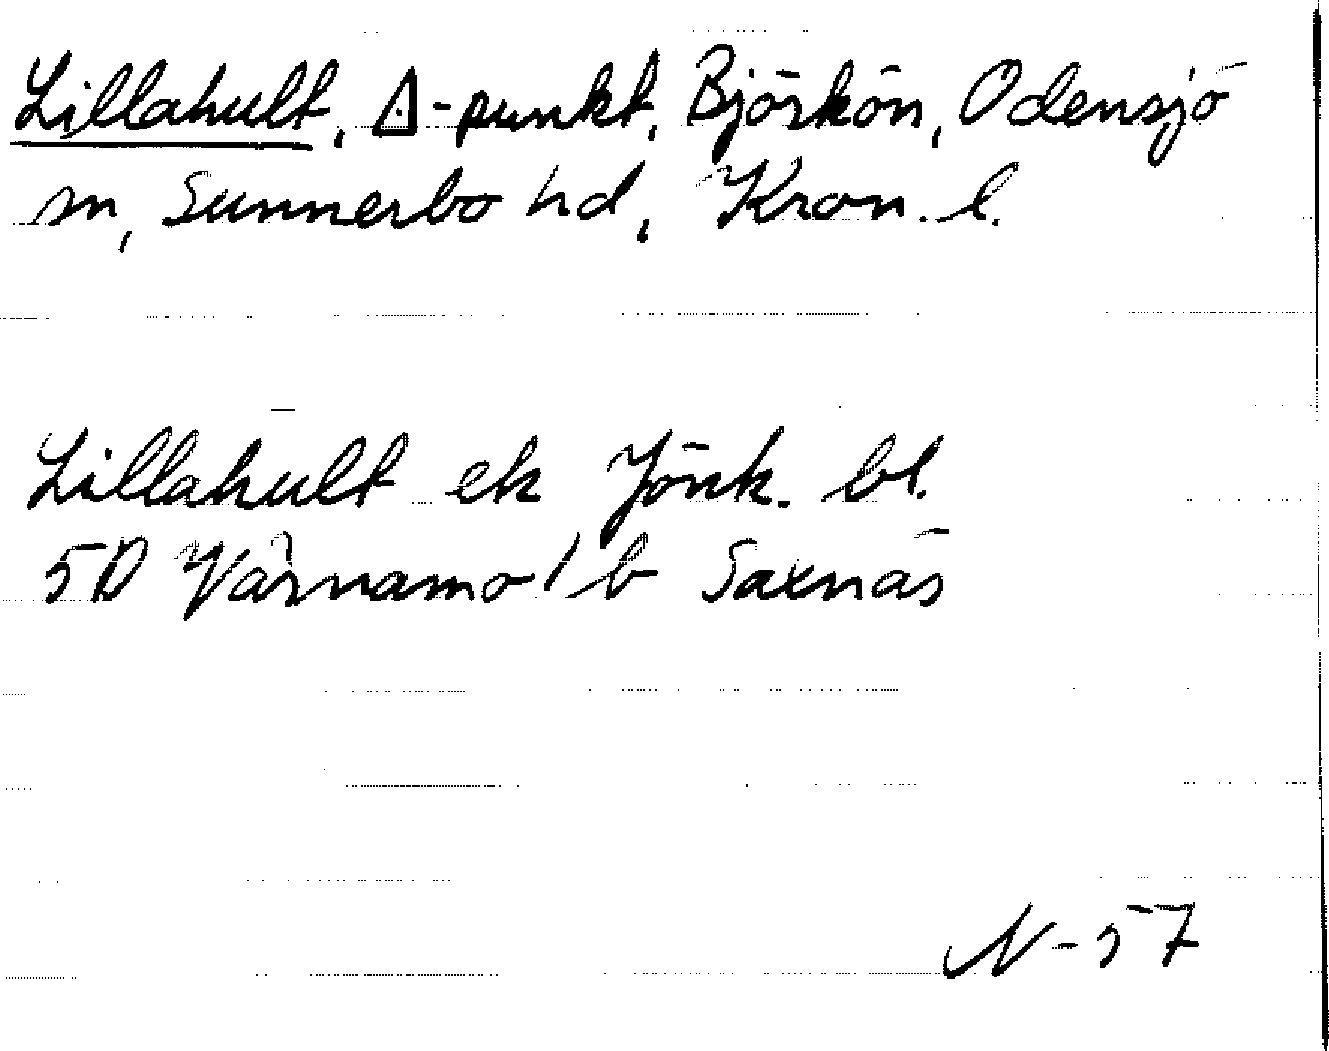 Lillahult, ∆-punkt, Björkön, Odensjö
sn, Sunnerbo hd, Kron. l.
Lillahult ek Jönk. bl.
5D Värnamo 1 b Saxnäs
N-57